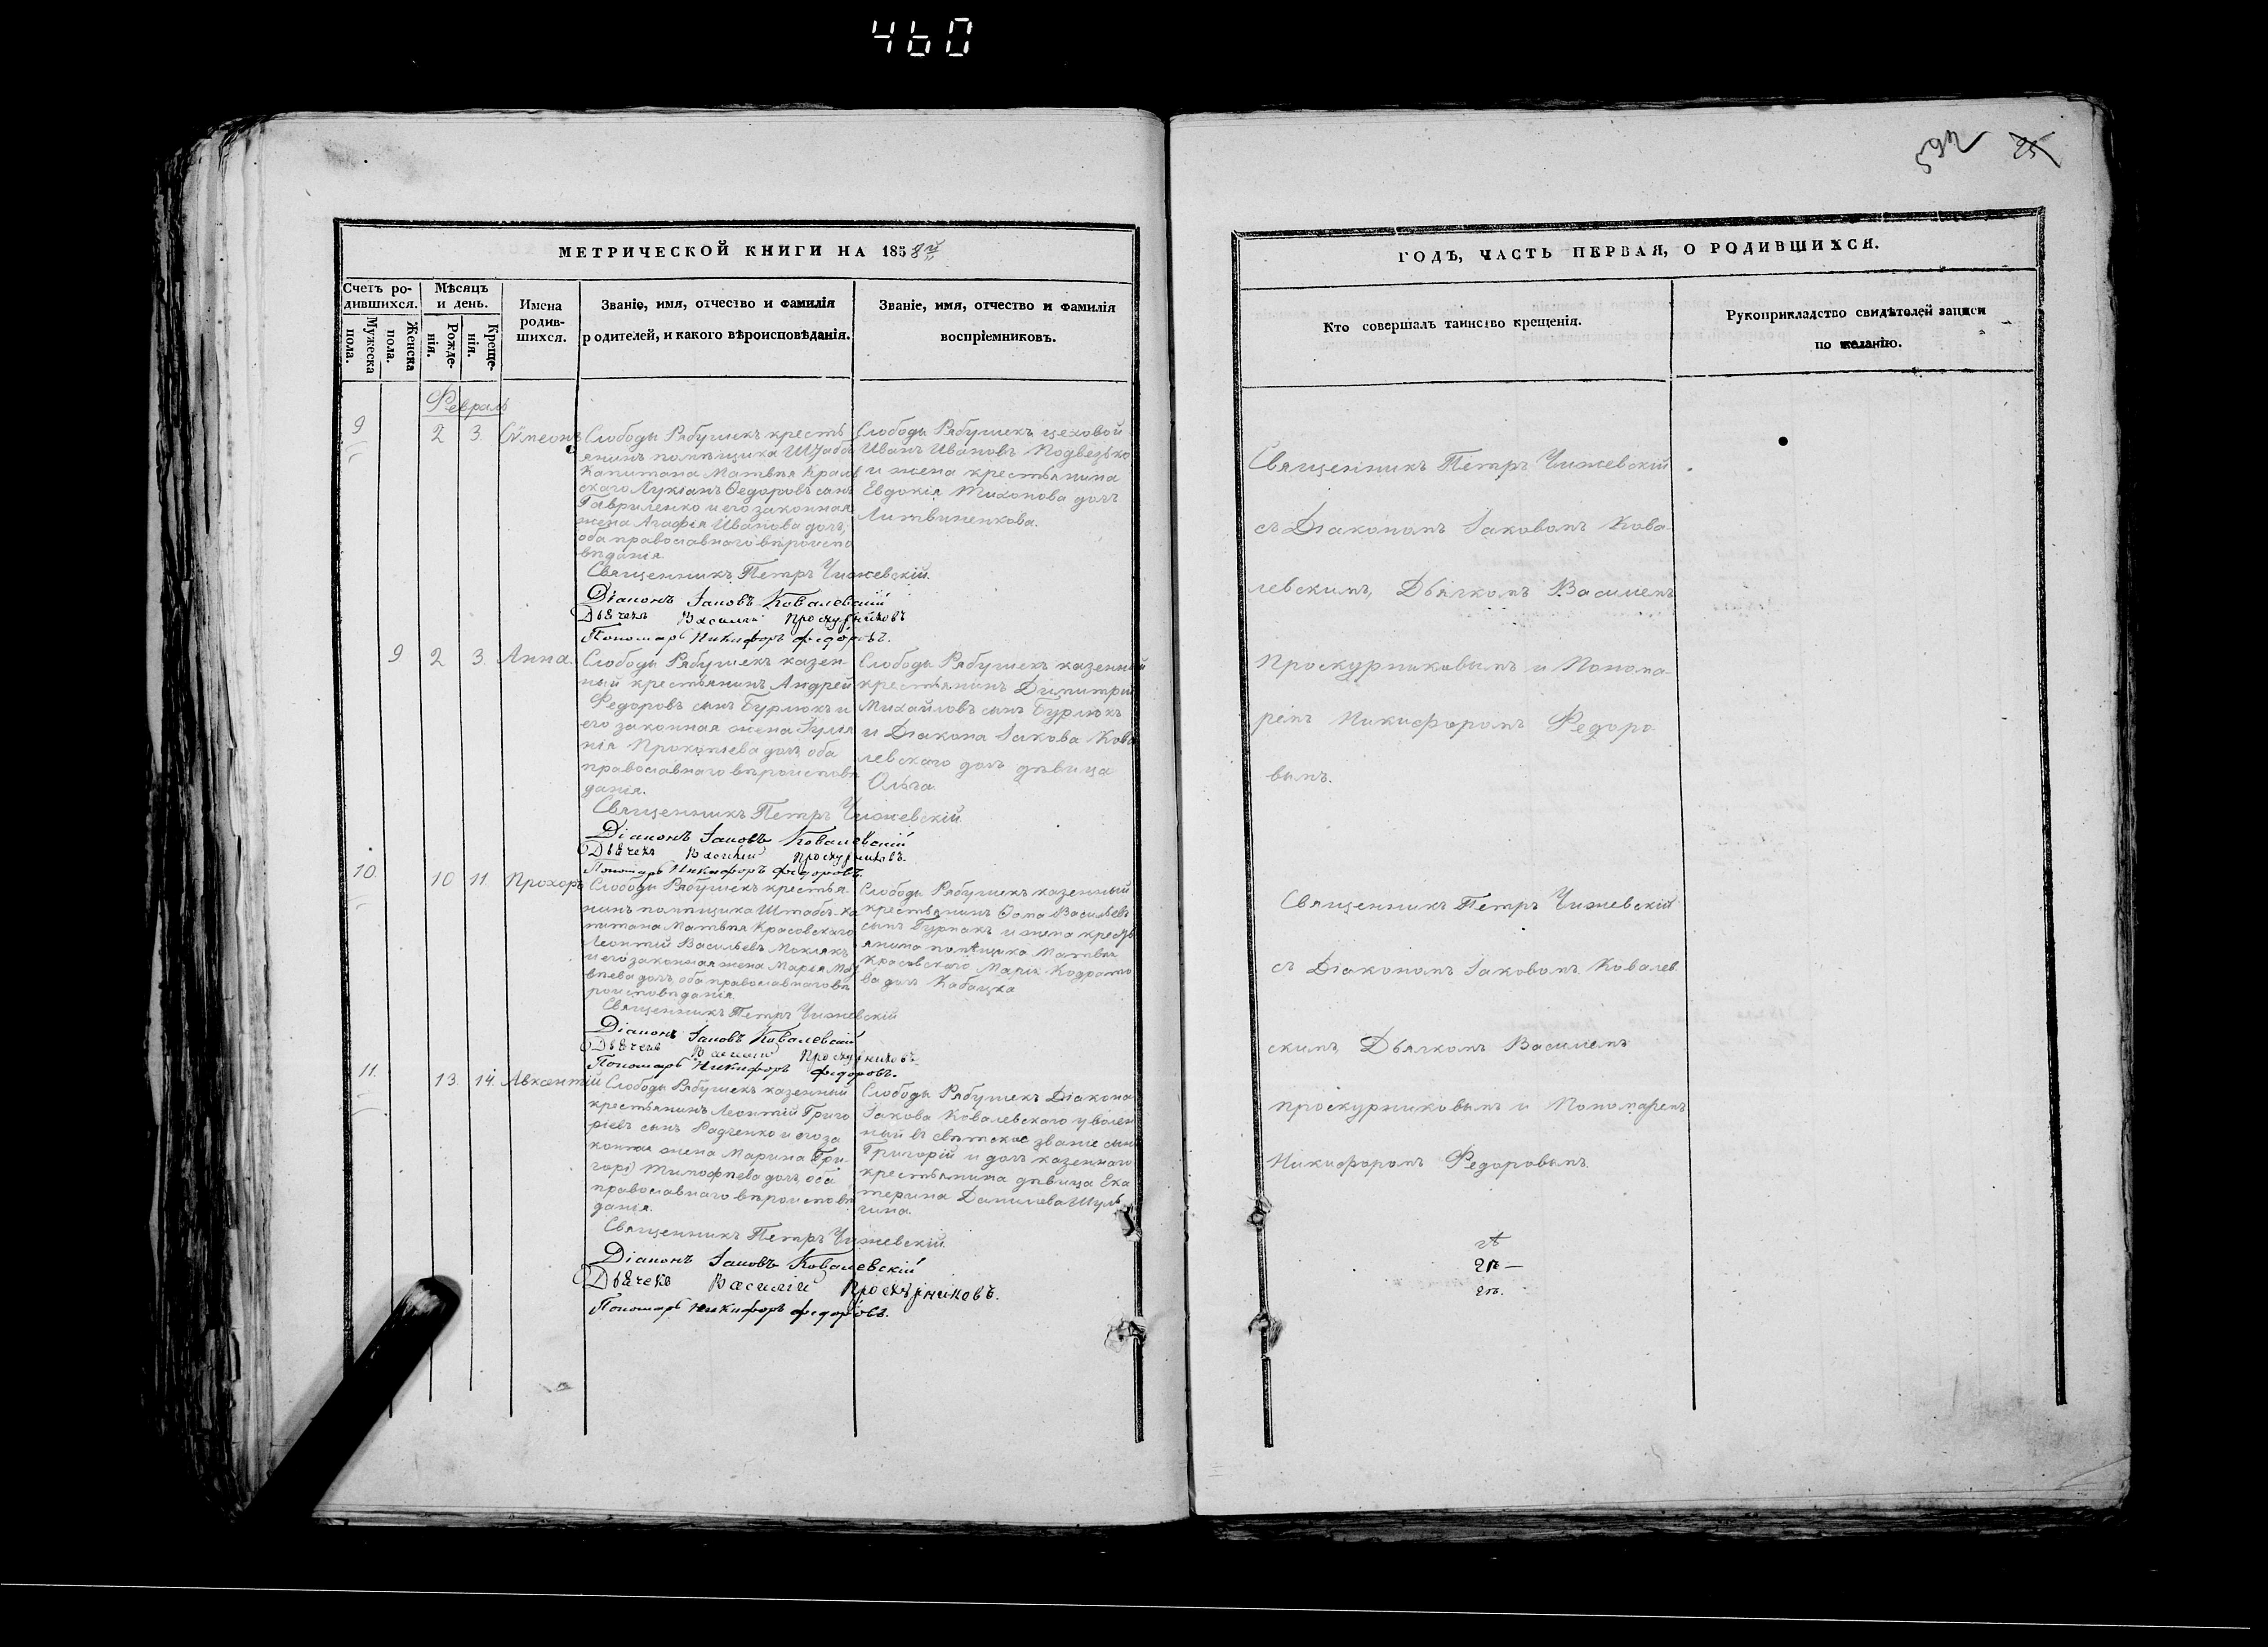 460
592 25
МЕТРИЧЕСКОЙ КНИГИ НА 1858й
Счетъ ро-
дившихся.
Мужеска
пола.
Женска
пола.
Мѣсяцъ
и день.
Рожде-
нія.
Креще-
нія.
Имена
родив-
шихся.
Званіе, имя, отчество и фамилія
родителей, и какого вѣроисповѣданія.
Званіе, имя, отчество и фамилія
воспріемниковъ.
Февраль
9 2 3. Сѵмеонъ
Слободы Рябушекъ кресть
янинъ помѣщика Штаба
Капитана Матвѣя Красов
скаго Лукіанъ Ѳедоровъ сынъ
Гавриленко и его законная
жена Агафія Иванова дочь,
оба православнаго вѣроиспо
вѣданія.
Священникъ Петръ Чижевскій.
Діаконъ Іаковъ Ковалевскій
Дьячекъ Василій Проскурниковъ
Пономарь Никифоръ Федоровъ.
Слободы Рябушекъ цеховой
Иванъ Ивановъ Подвезько
и жена крестьянина
Евдокія Тихонова дочь
Литвиненкова.
9 2 3. Анна.
Слободы Рябушекъ казен-
ный крестьянинъ Андрей
Федоровъ сынъ Бурлюкъ и
его законная жена Іулія
нія Прокопіева дочь, оба
православнаго вѣроисповѣ
данія.
Священникъ Петръ Чижевскій.
Діаконъ Іаковъ Ковалевскій
Дьячекъ Василій Проскурниковъ.
Пономарь Никифоръ Федоровъ.
Слободы Рябушекъ казенный
крестьянинъ Димитрій
Михайловъ сынъ Бурлюкъ
и Діакона Іакова Кова
левскаго дочь дѣвица
Ольга.
10. 10 11 Прохоръ
Слободы Рябушекъ крестья
нинъ помѣщика Штабсъ-Ка
питана Матвѣя Красовскаго
Леонтій Васильевъ Моклякъ
и его законная жена Марѳа Мат
вѣева дочь, оба православнаго вѣ
роисповѣданія.
Священникъ Петръ Чижевскій
Діаконъ Іаковъ Ковалевскій
Дьячекъ Василій Проскурниковъ
Пономарь Никифоръ Федоровъ.
Слободы Рябушекъ казенный
крестьянинъ Ѳома Васильевъ
сынъ и жена кресть
янина помѣщика Матвѣя
Красовскаго Марія Кодрато
ва дочь Кабацка
11. 13. 14. Авксентій
Слободы Рябушекъ казенный
крестьянинъ Леонтій Григо
ріевъ сынъ Радченко и его за
конная жена Марина Гри-
горі Тимофѣева дочь, оба
православнаго вѣроисповѣ
данія.
Священникъ Петръ Чижевскій.
Діаконъ Іаковъ Ковалевскій
Дьячекъ Василій Проскурниковъ.
Пономарь Никифоръ Федоровъ.
Слободы Рябушекъ Діакона
Іакова Ковалевскаго уволен
ный въ свѣтское званіе сынъ
Григорій и дочь казеннаго
крестьянина дѣвица Ека
терина Данилева Шуль
гина.
ГОДЪ, ЧАСТЬ ПЕРВАЯ, О РОДИВШИХСЯ.
Кто совершалъ таинство крещенія.
Рукоприкладство свидѣтелей записи
по желанію.
Священникъ Петръ Чижевскій
съ Діакономъ Іаковомъ Кова-
левскимъ, Дьячкомъ Василемъ
Проскурниковымъ и Понома-
ремъ Никифоромъ Федоро
вымъ.
Священникъ Петръ Чижевскій
съ Діакономъ Іаковомъ Ковалев
скимъ Дьячкомъ Василемъ
Проскурниковымъ и Пономаремъ
Никифоромъ Федоровымъ.